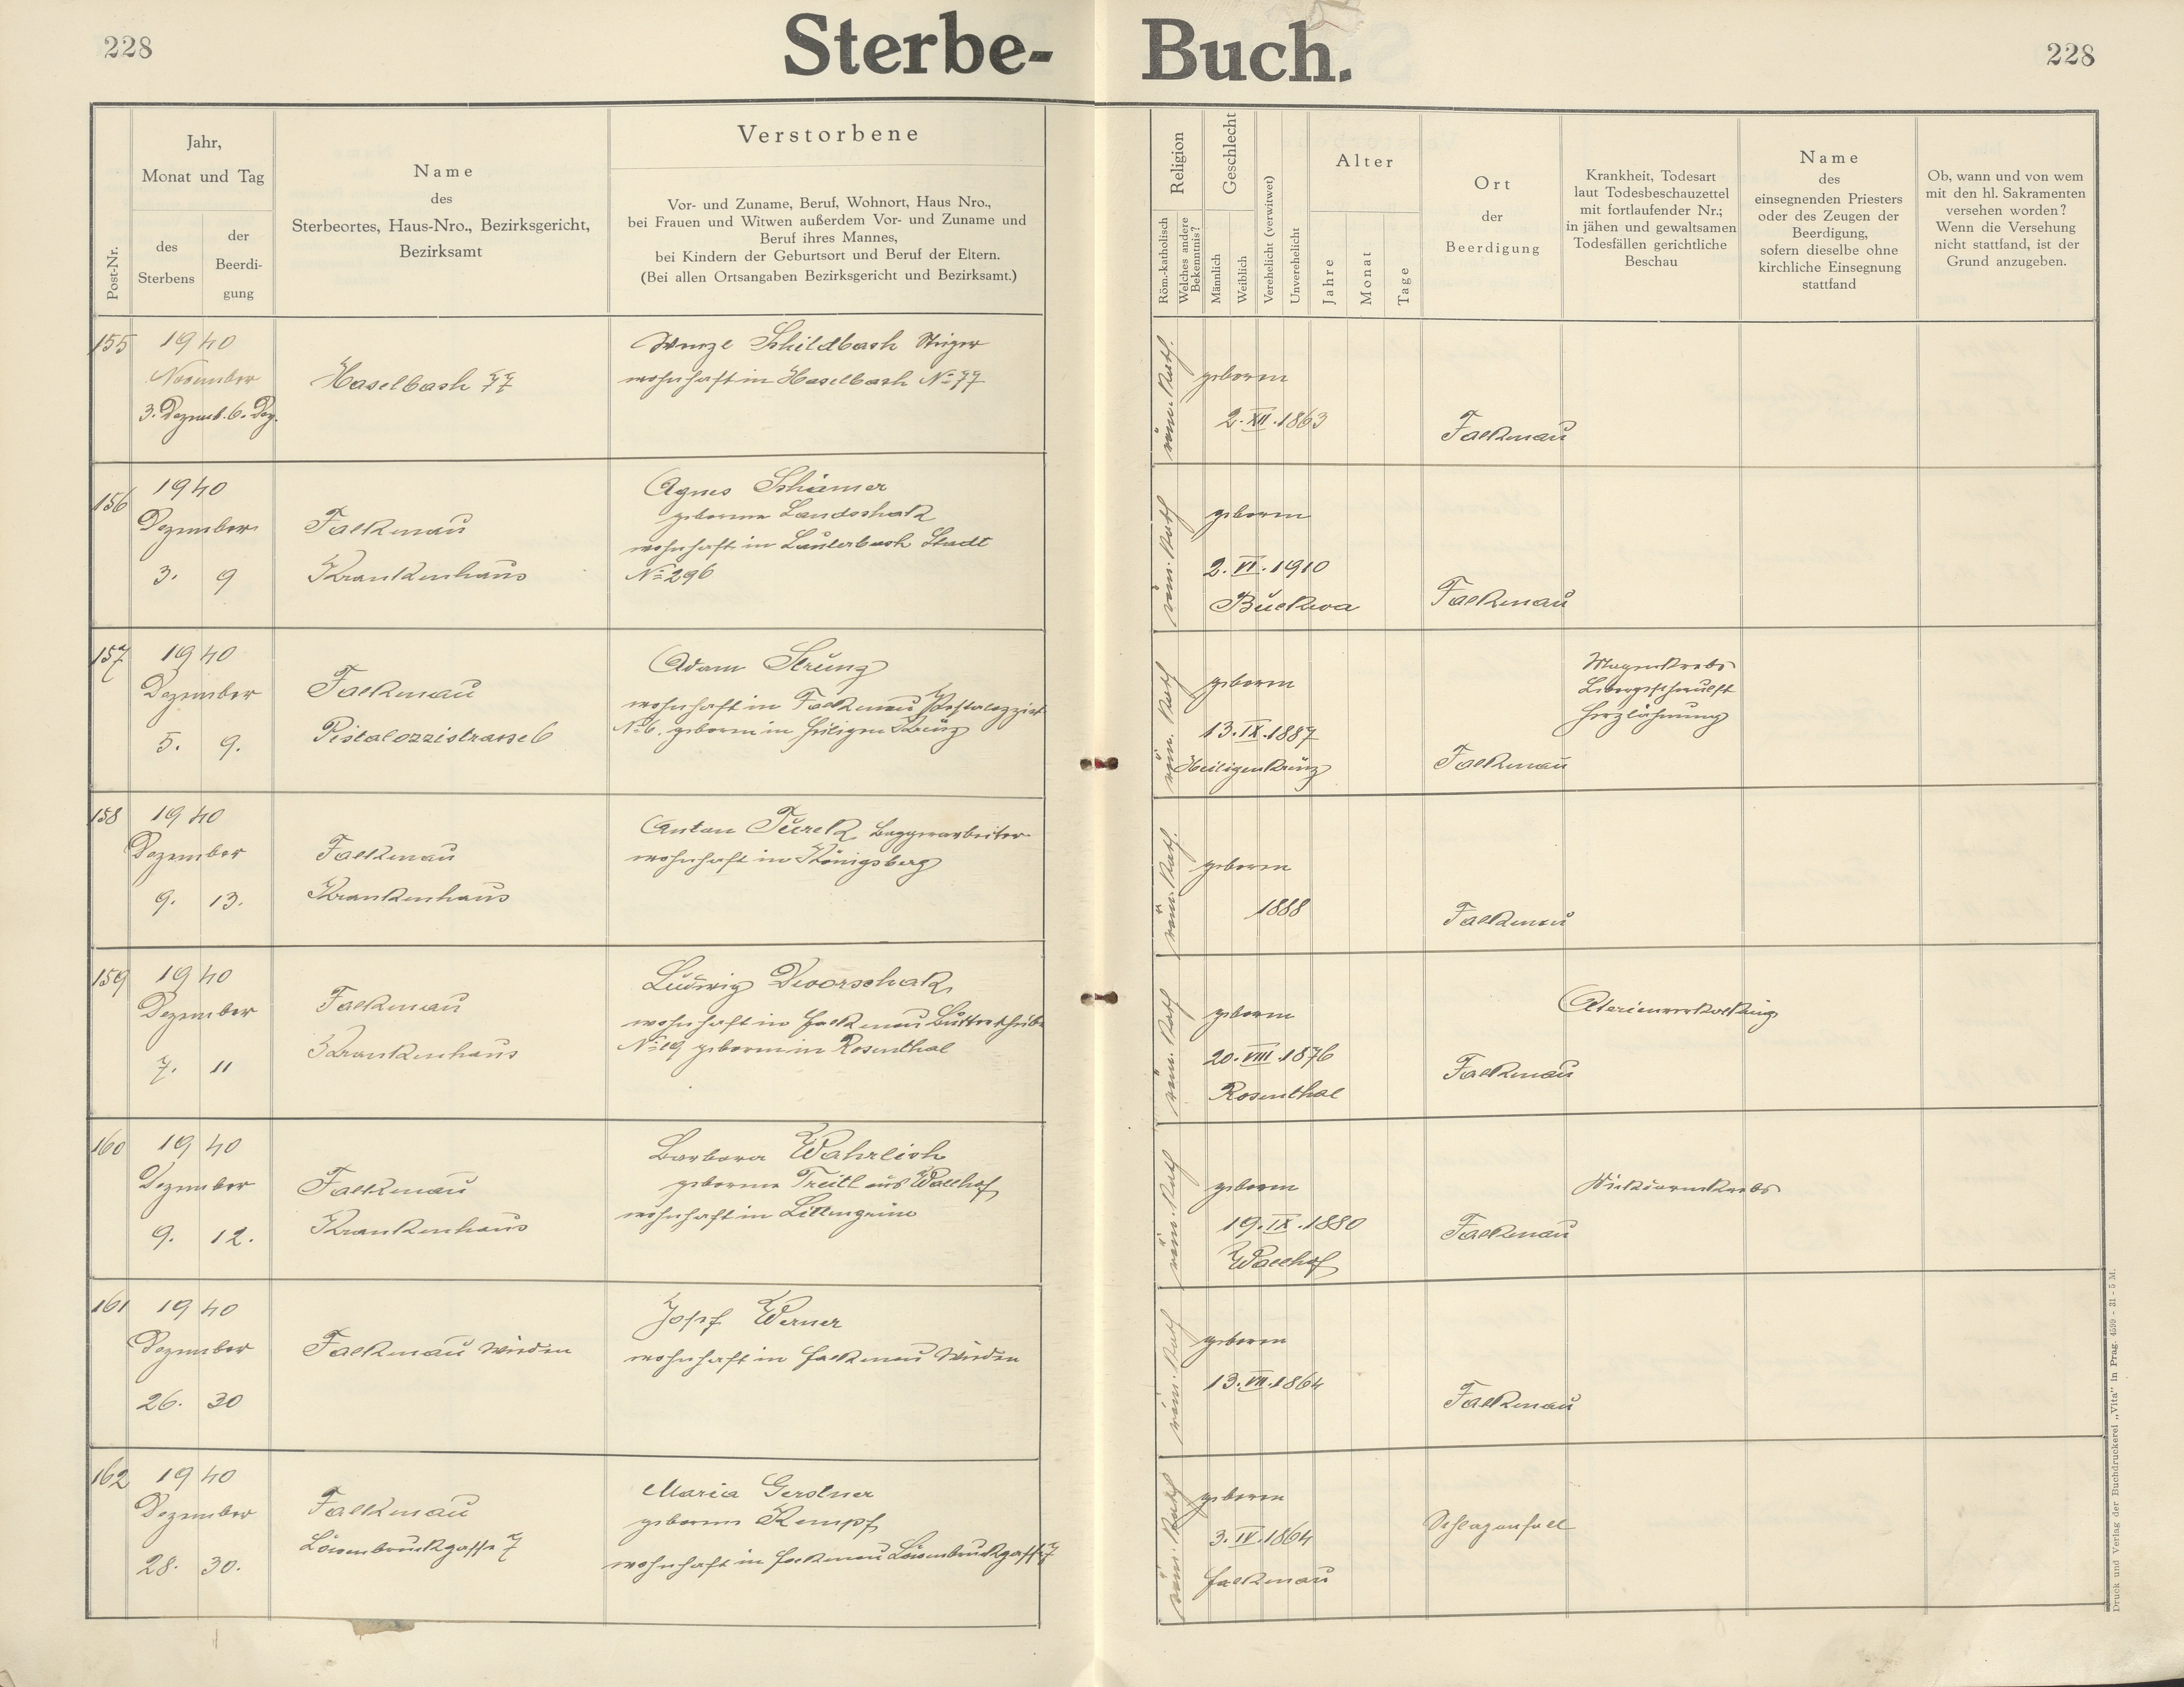 228
Sterbe-
Buch.
228
Post-Nr.
Jahr,
Monat und Tag
des
Sterbens
der
Beerdi-
gung
Name
des
Sterbeortes, Haus-Nro., Bezirksgericht,
Bezirksamt
Verstorbene
Vor- und Zuname, Beruf, Wohnort, Haus Nro.,
bei Frauen und Witwen außerdem Vor- und Zuname und
Beruf ihres Mannes,
bei Kindern der Geburtsort und Beruf der Eltern.
(Bei allen Ortsangaben Bezirksgericht und Bezirksamt.)
Religion
Röm.-katholisch
Welches andere
Bekenntnis?
Geschlecht
Männlich
Weiblich
Verehelicht (verwitwet)
Unverehelicht
Alter
Jahre
Monat
Tage
Ort
der
Beerdigung
Krankheit, Todesart
laut Todesbeschauzettel
mit fortlaufender Nr.;
in jähen und gewaltsamen
Todesfällen gerichtliche
Beschau
Name
des
einsegnenden Priesters
oder des Zeugen der
Beerdigung,
sofern dieselbe ohne
kirchliche Einsegnung
stattfand
Ob, wann und von wem
mit den hl. Sakramenten
versehen worden?
Wenn die Versehung
nicht stattfand, ist der
Grund anzugeben.
155
1940
November
3. Dezemb. 6. Dez.
Haselbach 77
Wenzl Schildbach Steiger
wohnhaft in Haselbach No 77
röm. kath.
geboren
2. XII. 1863
Falkenau
156
1940
Dezember
3. 9
Falkenau
Krankenhaus
Agnes Schiemer
geborene Landschak
wohnhaft in Lauterbach Stadt
No 296
röm. kath
geboren
2. VI. 1910
Buckwa
Falkenau
157
1940
Dezember
5. 9.
Falkenau
Pistalozzistrasse 6
Adam Strunz
wohnhaft in Falkenau Pestalozzist
No 6. geboren in Heiligen Kreuz
röm. kath
geboren
13. IX. 1887
Heiligenkreuz
Falkenau
Magenkrebs
Lebergeschwulst
Herzlähmung
158
1940
Dezember
9. 13.
Falkenau
Krankenhaus
Anton Turek Baggerarbeiter
wohnhaft in Königsberg
röm. kath.
geboren
1888
Falkenau
159
1940
Dezember
7. 11
Falkenau
Krankenhaus
Ludwig Dworschak
wohnhaft in Falkenau
No 19 geboren in Rosenthal
röm. kath
geboren
20. VIII. 1876
Rosenthal
Falkenau
Aterienverkalkung
160
1940
Dezember
9. 12.
Falkenau
Krankenhaus
Barbara Wahrlich
geborene Treitl aus Wallhof
wohnhaft in Littengrün
röm. kath
geboren
19. IX. 1880
Wallhof
Falkenau
Dickdarmkrebs
161
1940
Dezember
26. 30
Falkenau Wieden
Josef Werner
wohnhaft in Falkenau Wieden
röm. kath
geboren
13. VII. 1864
Falkenau
162
1940
Dezember
28. 30.
Falkenau
Löwenbruckgasse 7
Maria Gerstner
geborene Kempf
wohnhaft in Falkenau Löwenbruckgasse 7
röm. kath
geboren
3. IV. 1864
Falkenau
Schlaganfall
Druck und Verlag der Buchdruckerei „Vita" in Prag. 4599 - 31 - 5 M.